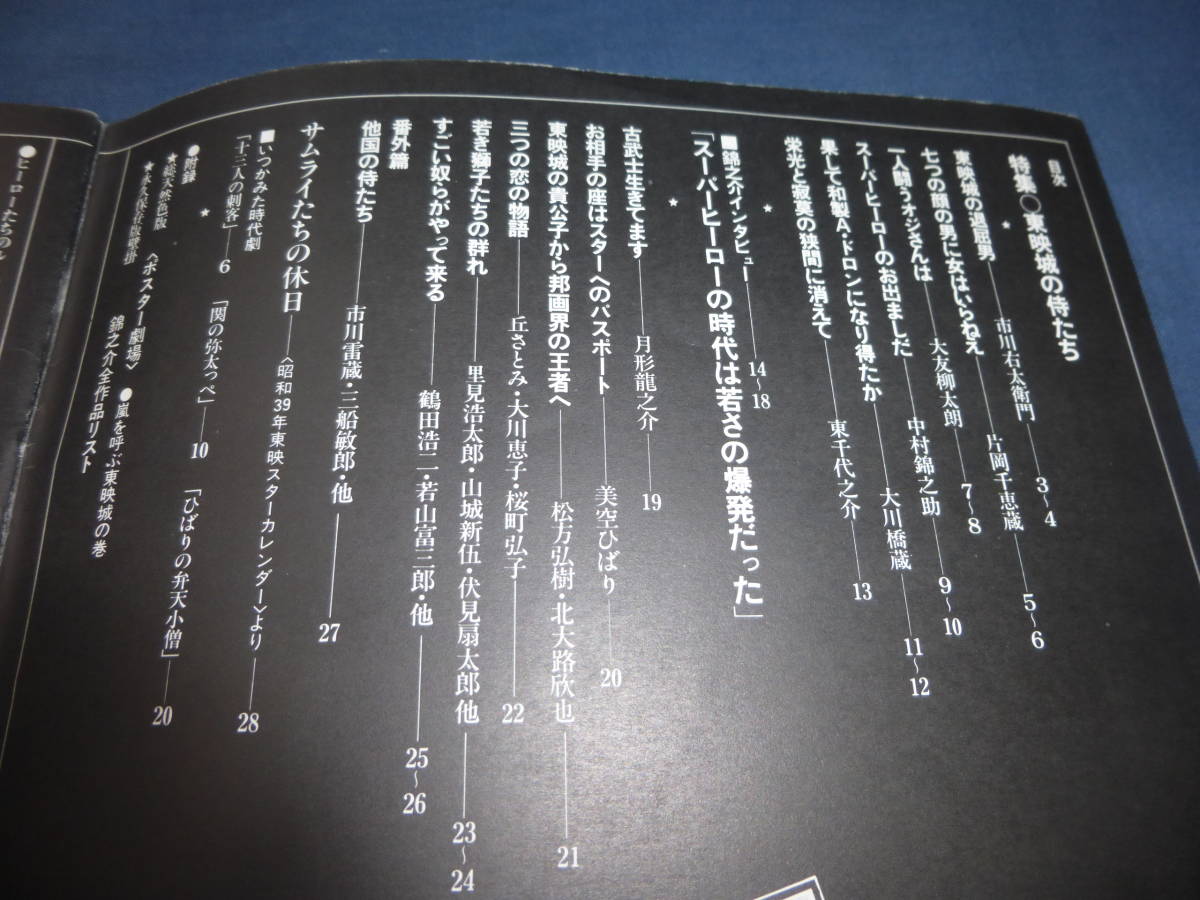 目次
特集○東映城の侍たち
★
東映城の退屈男――市川右太衛門――3〜4
七つの顔の男に女はいらねえ――片岡千恵蔵――5〜6
一人闘うオジさんは――大友柳太朗――7〜8
スーパーヒーローのお出ましだ――中村錦之助――9〜10
果して和製A・ドロンになり得たか――大川橋蔵――11〜12
栄光と寂寞の狭間に消えて――東千代之介――13
★
■錦之介インタビュー――14〜18
「スーパーヒーローの時代は若さの爆発だった」
★
古武士生きてます――月形龍之介――19
お相手の座はスターへのパスポート――美空ひばり――20
東映城の貴公子から邦画界の王者へ――松方弘樹・北大路欣也――21
三つの恋の物語――丘さとみ・大川恵子・桜町弘子――22
若き獅子たちの群れ――里見浩太郎・山城新伍・伏見扇太郎他――23〜24
すごい奴らがやって来る――鶴田浩二・若山富三郎・他――25〜26
番外篇
他国の侍たち――市川雷蔵・三船敏郎・他――27
サムライたちの休日――〈昭和39年東映スターカレンダー〉より――28
■いつかみた時代劇
「十三人の刺客」――6 「関の弥太っぺ」――10 「ひばりの弁天小僧」――20
★
●附録
★総天然色版
★永久保存版壁掛
〈ポスター劇場〉 ●嵐を呼ぶ東映城の巻
錦之介全作品リスト
●ヒーローたちの